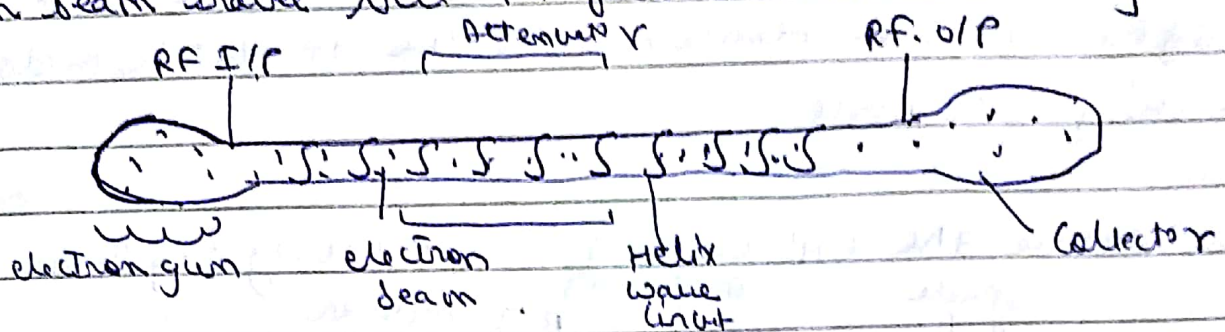 beam
Attenuator
RF I/P
RF. O/P
electron gun
electron
beam
Helix
wave
circuit
Collector